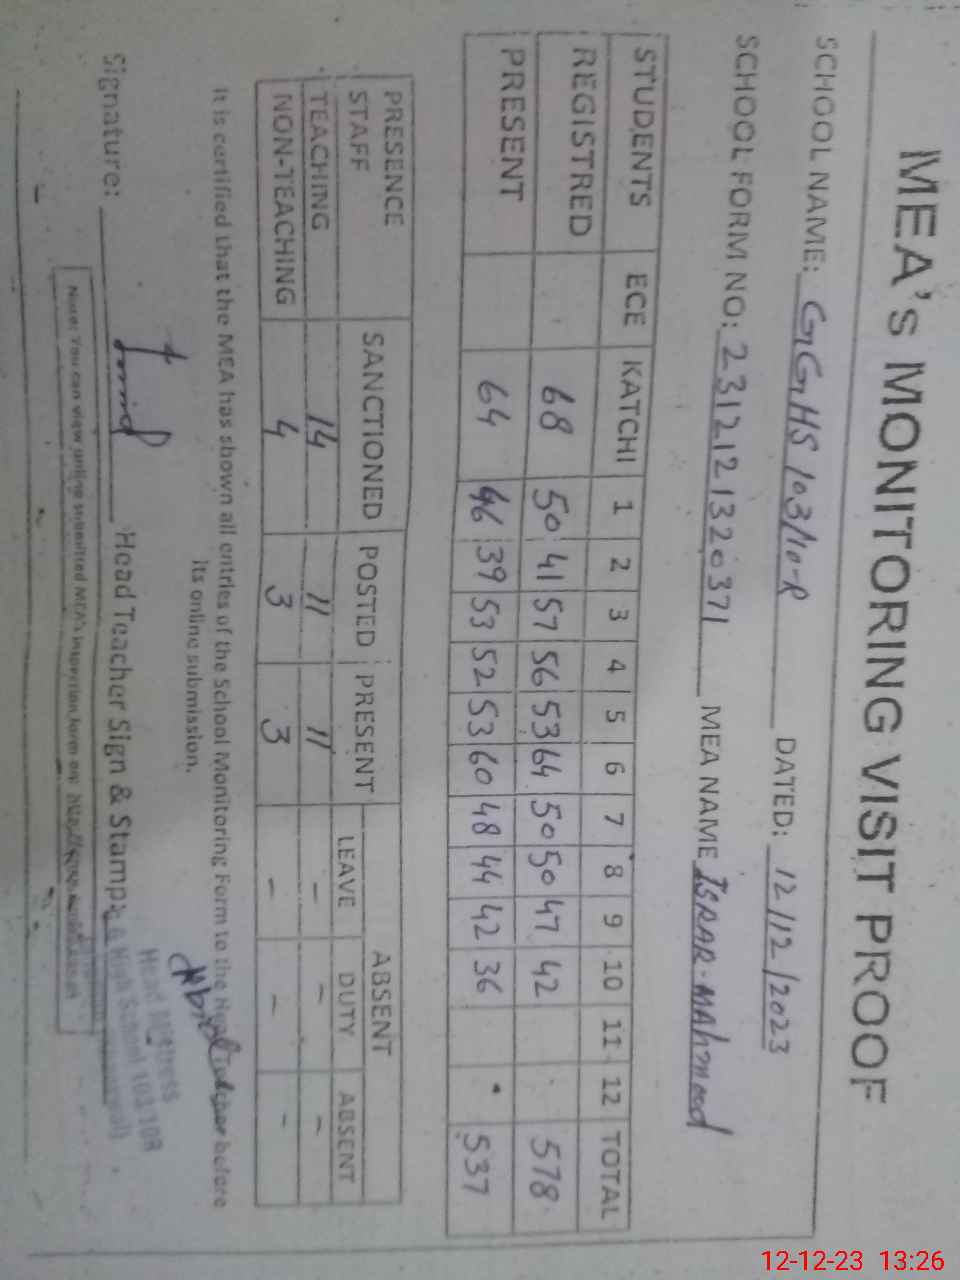 MEA's MONITORING VISIT PROOF
SCHOOL NAME: GGHS 103/10-R DATED: 12/12/2023
SCHOOL FORM NO: 2312121320371 MEA NAME ISRAR.MAHmood
STUDENTS ECE KATCHI 1 2 3 4 5 6 7 8 9 10 11 12 TOTAL
REGISTRED 68 50 41 57 56 53 64 50 50 47 42 578
PRESENT 64 46 39 53 52 53 60 48 44 42 36 537
PRESENCE STAFF SANCTIONED POSTED PRESENT ABSENT
LEAVE DUTY ABSENT
TEACHING 14 11 11 - - -
NON-TEACHING 4 3 3 - - -
It is certified that the MEA has shown all entries of the School Monitoring Form to the Head Teacher before
its online submission.
Signature: Head Teacher Sign & Stamp:
Head Mistress
High School 103 10R
Note: You can view online submitted MEA's inspection form on:
12-12-23 13:26